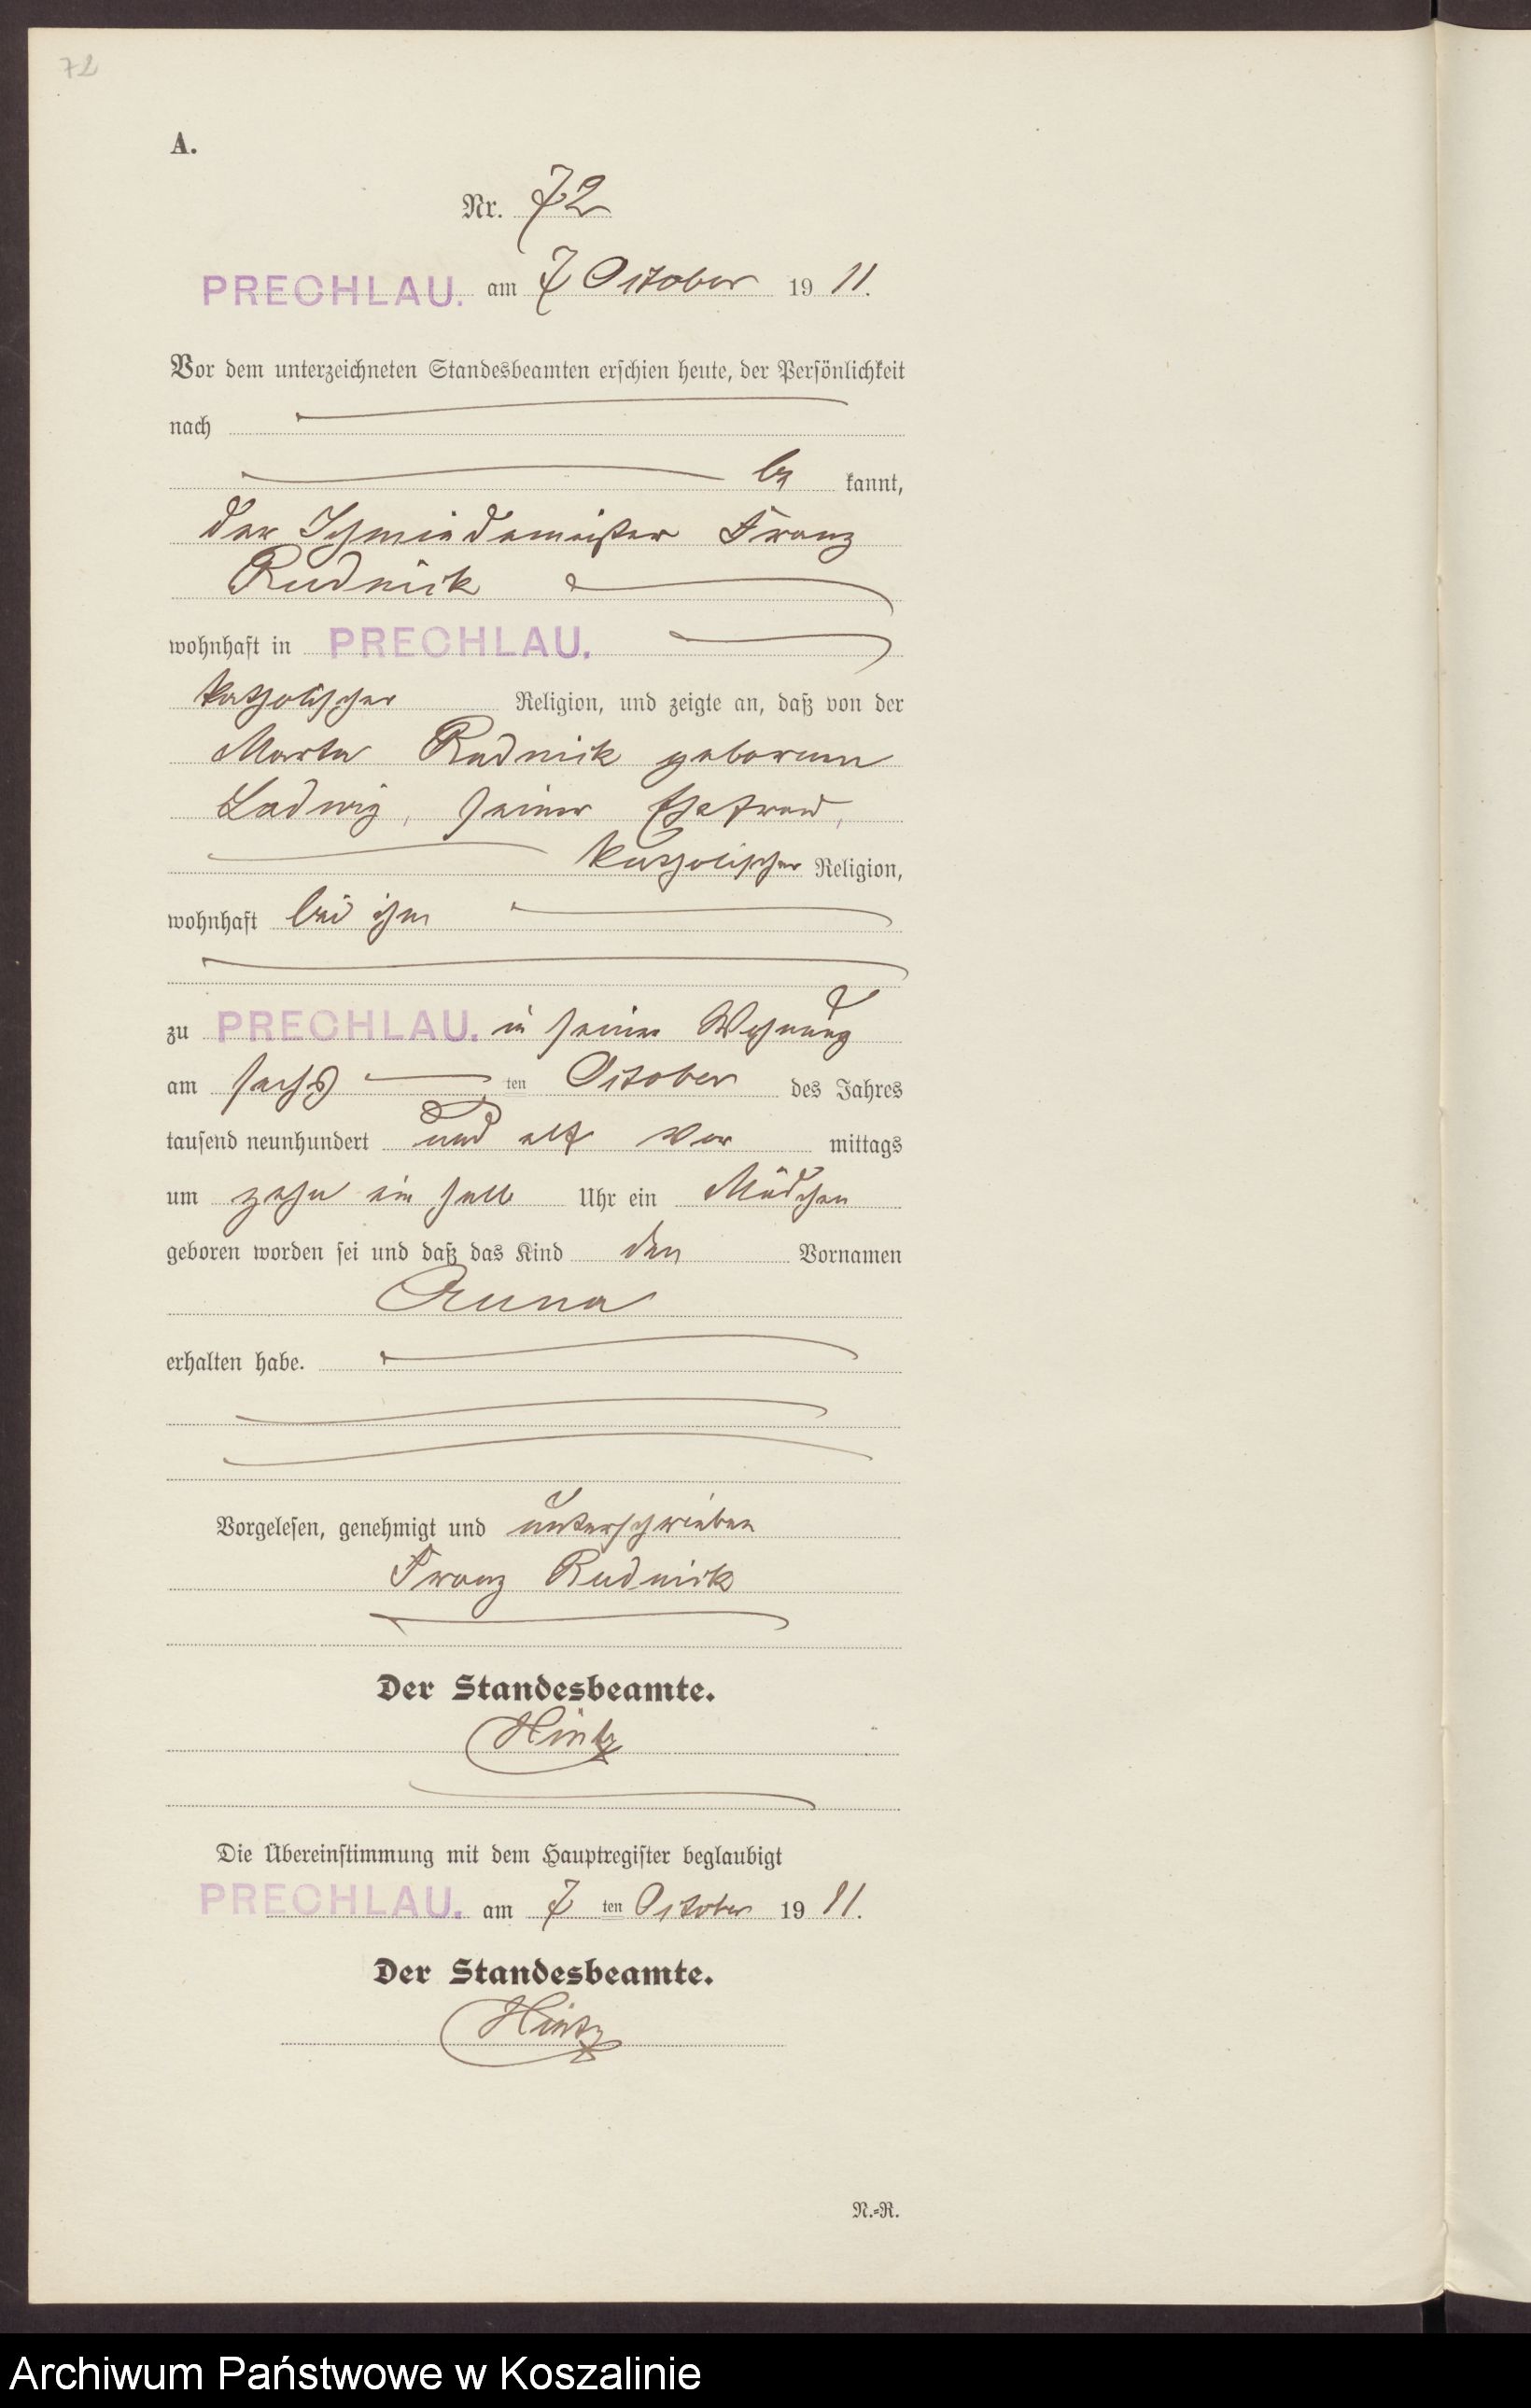 72
A.
Nr. 72
PRECHLAU. am 7 October 1911.
Vor dem unterzeichneten Standesbeamten erschien heute, der Persönlichkeit
nach
be kannt,
der Schmiedemeister Franz
Rudnick
wohnhaft in PRECHLAU.
katholischer Religion, und zeigte an, daß von der
Marta Rudnick geborenen
Ladwig, seiner Ehefrau,
katholischer Religion,
wohnhaft bei ihm
zu PRECHLAU. in seiner Wohnung
am sechs ten October des Jahres
tausend neunhundert und elf Vor mittags
um zehn ein halb Uhr ein Mädchen
geboren worden sei und daß das Kind den Vornamen
Anna
erhalten habe.
Vorgelesen, genehmigt und unterschrieben
Franz Rudnick
Der Standesbeamte.
Hintz
Die Übereinstimmung mit dem Hauptregister beglaubigt
PRECHLAU. am 7 ten October 1911.
Der Standesbeamte.
Hintz
N.=R.
Archiwum Państwowe w Koszalinie